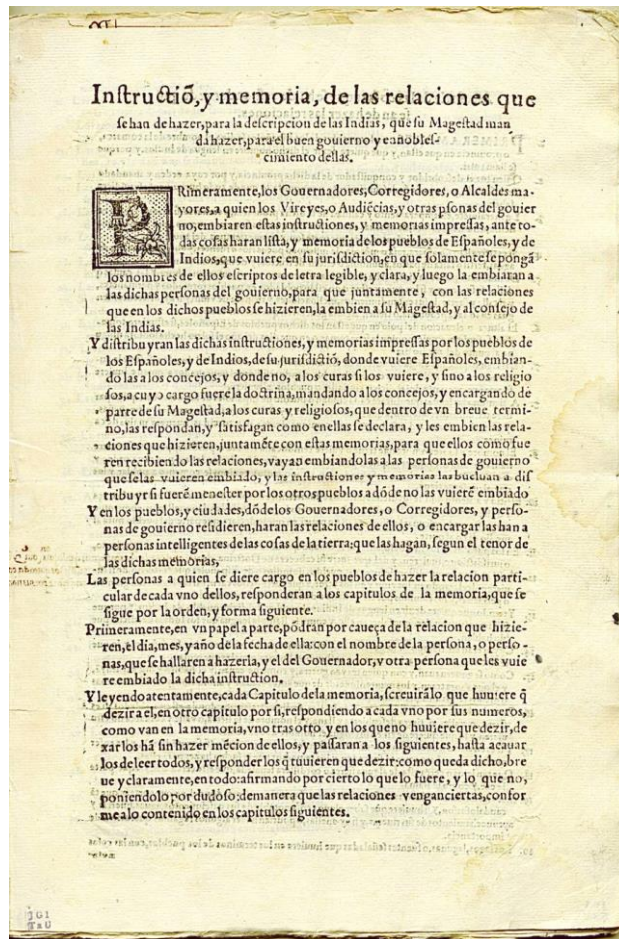 Instructiõ, y memoria, de las relaciones que
se han de hazer, para la descripcion de las Indias, que su Magestad man
da hazer, para el buen gouierno y ennobles-
cimiento dellas.
PRimeramente, los Gouernadores, Corregidores, o Alcaldes ma-
yores, a quien los Vireyes, o Audiẽcias, y otras psonas del gouier
no, embiaren estas instructiones, y memorias impressas, ante to-
das cosas haran lista, y memoria de los pueblos de Españoles, y de
Indios, que vuiere en su jurisdiction, en que solamente se pongã
los nombres de ellos escriptos de letra legible, y clara, y luego la embiaran a
las dichas personas del gouierno, para que juntamente, con las relaciones
que en los dichos pueblos se hizieren, la embien a su Magestad, y al consejo de
las Indias.
Y distribuyran las dichas instructiones, y memorias impressas por los pueblos de
los Españoles, y de Indios, de su jurisdictiõ, donde vuiere Españoles, embian-
do las a los concejos, y donde no, a los curas si los vuiere, y sino a los religio
sos, a cuyo cargo fuere la doctrina, mandando a los concejos, y encargando de
parte de su Magestad, a los curas y religiosos, que dentro de vn breue termi-
no, las respondan, y satisfagan como en ellas se declara, y les embien las rela-
ciones que hizieren, juntamẽte con estas memorias, para que ellos como fue
ren recibiendo las relaciones, vayan embiandolas a las personas de gouierno
que se las vuieren embiado, y las instructiones y memorias las bueluan a dis
tribuyr si fuerẽ menester por los otros pueblos a dõde no las vuierẽ embiado
Y en los pueblos, y ciudades, dõde los Gouernadores, o Corregidores, y perso-
nas de gouierno residieren, haran las relaciones de ellos, o encargar las han a
personas intelligentes de las cosas de la tierra: que las hagan, segun el tenor de
las dichas memorias,
Las personas a quien se diere cargo en los pueblos de hazer la relacion parti-
cular de cada vno dellos, responderan a los capitulos de la memoria, que se
sigue por la orden, y forma siguiente.
Primeramente, en vn papel a parte, põdran por caueça de la relacion que hizie-
ren, el dia, mes, y año de la fecha de ella: con el nombre de la persona, o perso-
nas, que se hallaren a hazerla, y el del Gouernador, v otra persona que les vuie
re embiado la dicha instruction.
Y leyendo atentamente, cada Capitulo de la memoria, screuirã lo que huuiere q̃
dezir a el, en otro capitulo por si, respondiendo a cada vno por sus numeros,
como van en la memoria, vno tras otro y en los que no huuiere que dezir, de
xar los hã sin hazer mẽcion de ellos, y passaran a los siguientes, hasta acauar
los de leer todos, y responder los q̃ tuuieren que dezir: como queda dicho, bre
ue y claramente, en todo: afirmando por cierto lo que lo fuere, y lo que no,
poniendolo por dudoso: de manera que las relaciones vengan ciertas, confor
me a lo contenido en los capitulos siguientes.